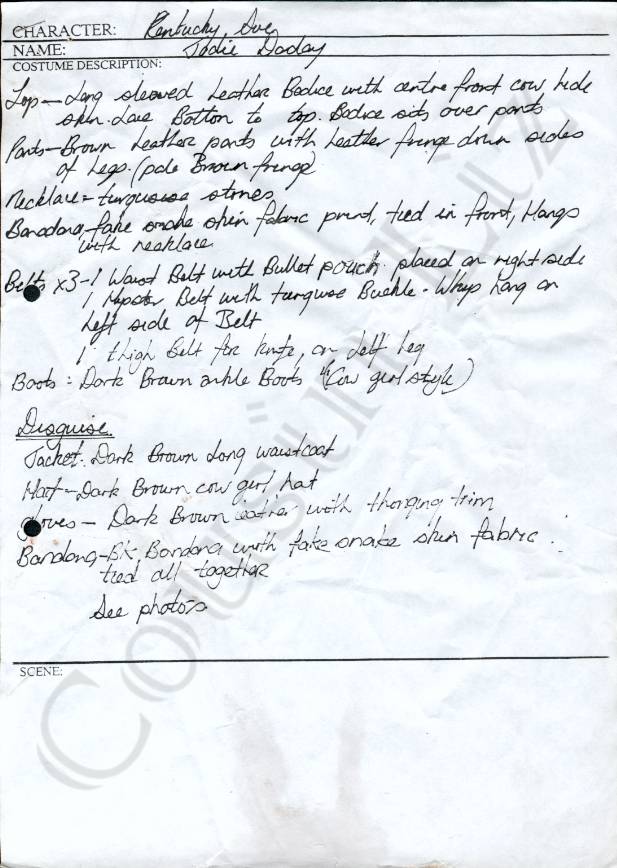 CHARACTER: Kentucky, Sue
NAME: Jodie Dorday
COSTUME DESCRIPTION:
Top - Long sleeved Leather Bodice with centre front cow hide
skin. Lace Bottom to top. Bodice sits over pants
Pants - Brown Leather pants with Leather fringe down sides
of Legs. (pale Brown fringe)
Necklace = turquoise stones
Bandana - fake snake skin fabric print, tied in front, Hangs
with necklace
Belts x3 - 1 Waist Belt with Bullet pouch. placed on right side
1 Hipster Belt with turquise Buckle - Whip hang on
Left side of Belt
1 thigh Belt for knife, on Left Leg
Boots : Dark Brown ankle Boots "(Cow girl style)
Disguise
Jacket. Dark Brown Long waistcoat
Hat - Dark Brown cow girl hat
Gloves - Dark Brown Leather with thonging trim
Bandana - Bk Bandana with fake snake skin fabric.
tied all together
See photos
SCENE: